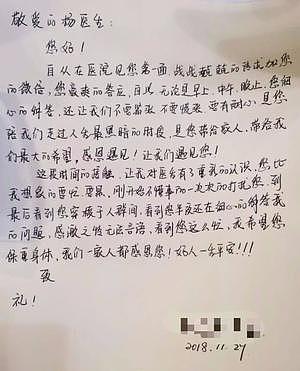 敬爱的杨医生：
您好！
自从在医院见您第一面，战战兢兢的请求加您
的微信，您爽爽的答应，自此无论是早上、中午、晚上，您细
心的解答，还让我们不要紧张不要慌张要有耐心，是您
陪我们走过人生最黑暗的时段，是您带给家人，带给我
们最大的希望，感恩遇见！让我们遇见您！
这段时间的接触，让我对医生有了重新的认识，您比
我想象的要忙要累，刚开始不懂事的一次次的打扰您，到
最后看到您穿梭于人群间，看到您半夜还在细心的解答我
的问题，感激之情无法言语，看到您这么忙，我希望您
保重身体，我们一家人都感恩您！好人一生平安！！！
致
礼！
2018.11.27